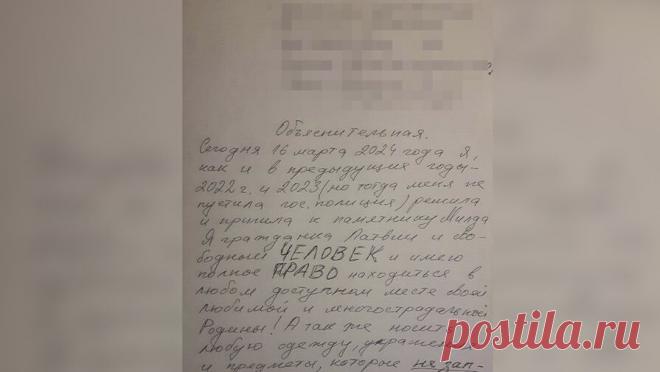 Объяснительная.
Сегодня 16 марта 2024 года я,
как и в предыдущие годы-
2022 г. и 2023 (но тогда меня не
пустила гос. полиция) решила
и пришла к памятнику Милда
Я гражданка Латвии и сво-
бодный ЧЕЛОВЕК и имею
полное ПРАВО находиться в
любом доступном месте своей
любимой и многострадальной
Родины! А так же носить
любую одежду, украшения
и предметы, которые не зап-
postila.ru